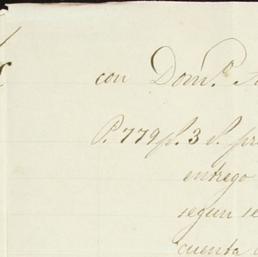 con Domº.
P. 779 p. 3 S. pr
entrego
segun se
cuenta